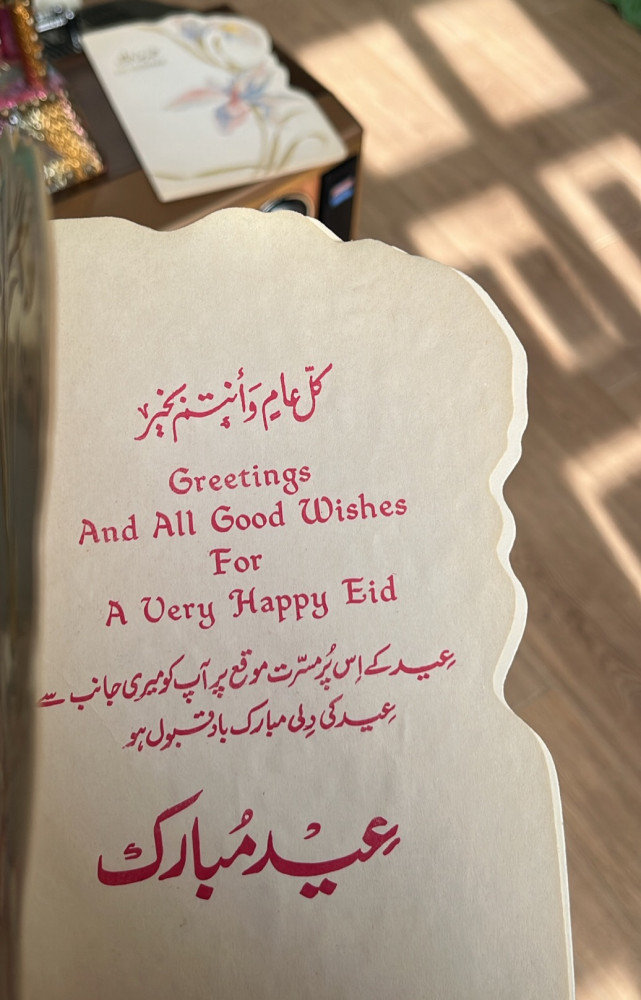 كلّ عامٍ وَأنتم بخير
Greetings
And All Good Wishes
For
A Very Happy Eid
عِید کے اِس پُرمسرّت موقع پر آپ کو میری جانب سے
عِید کی دِلی مبارک باد قبول ہو
عِید مُبارک